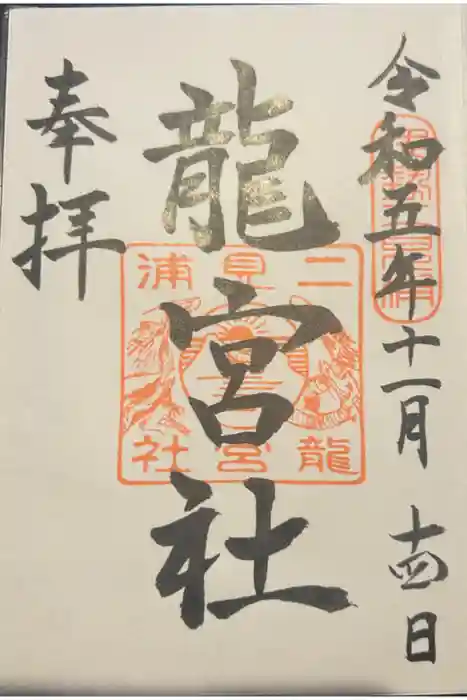 令和五年十一月 十四日
龍宮社
二見浦
龍宮社
奉拝